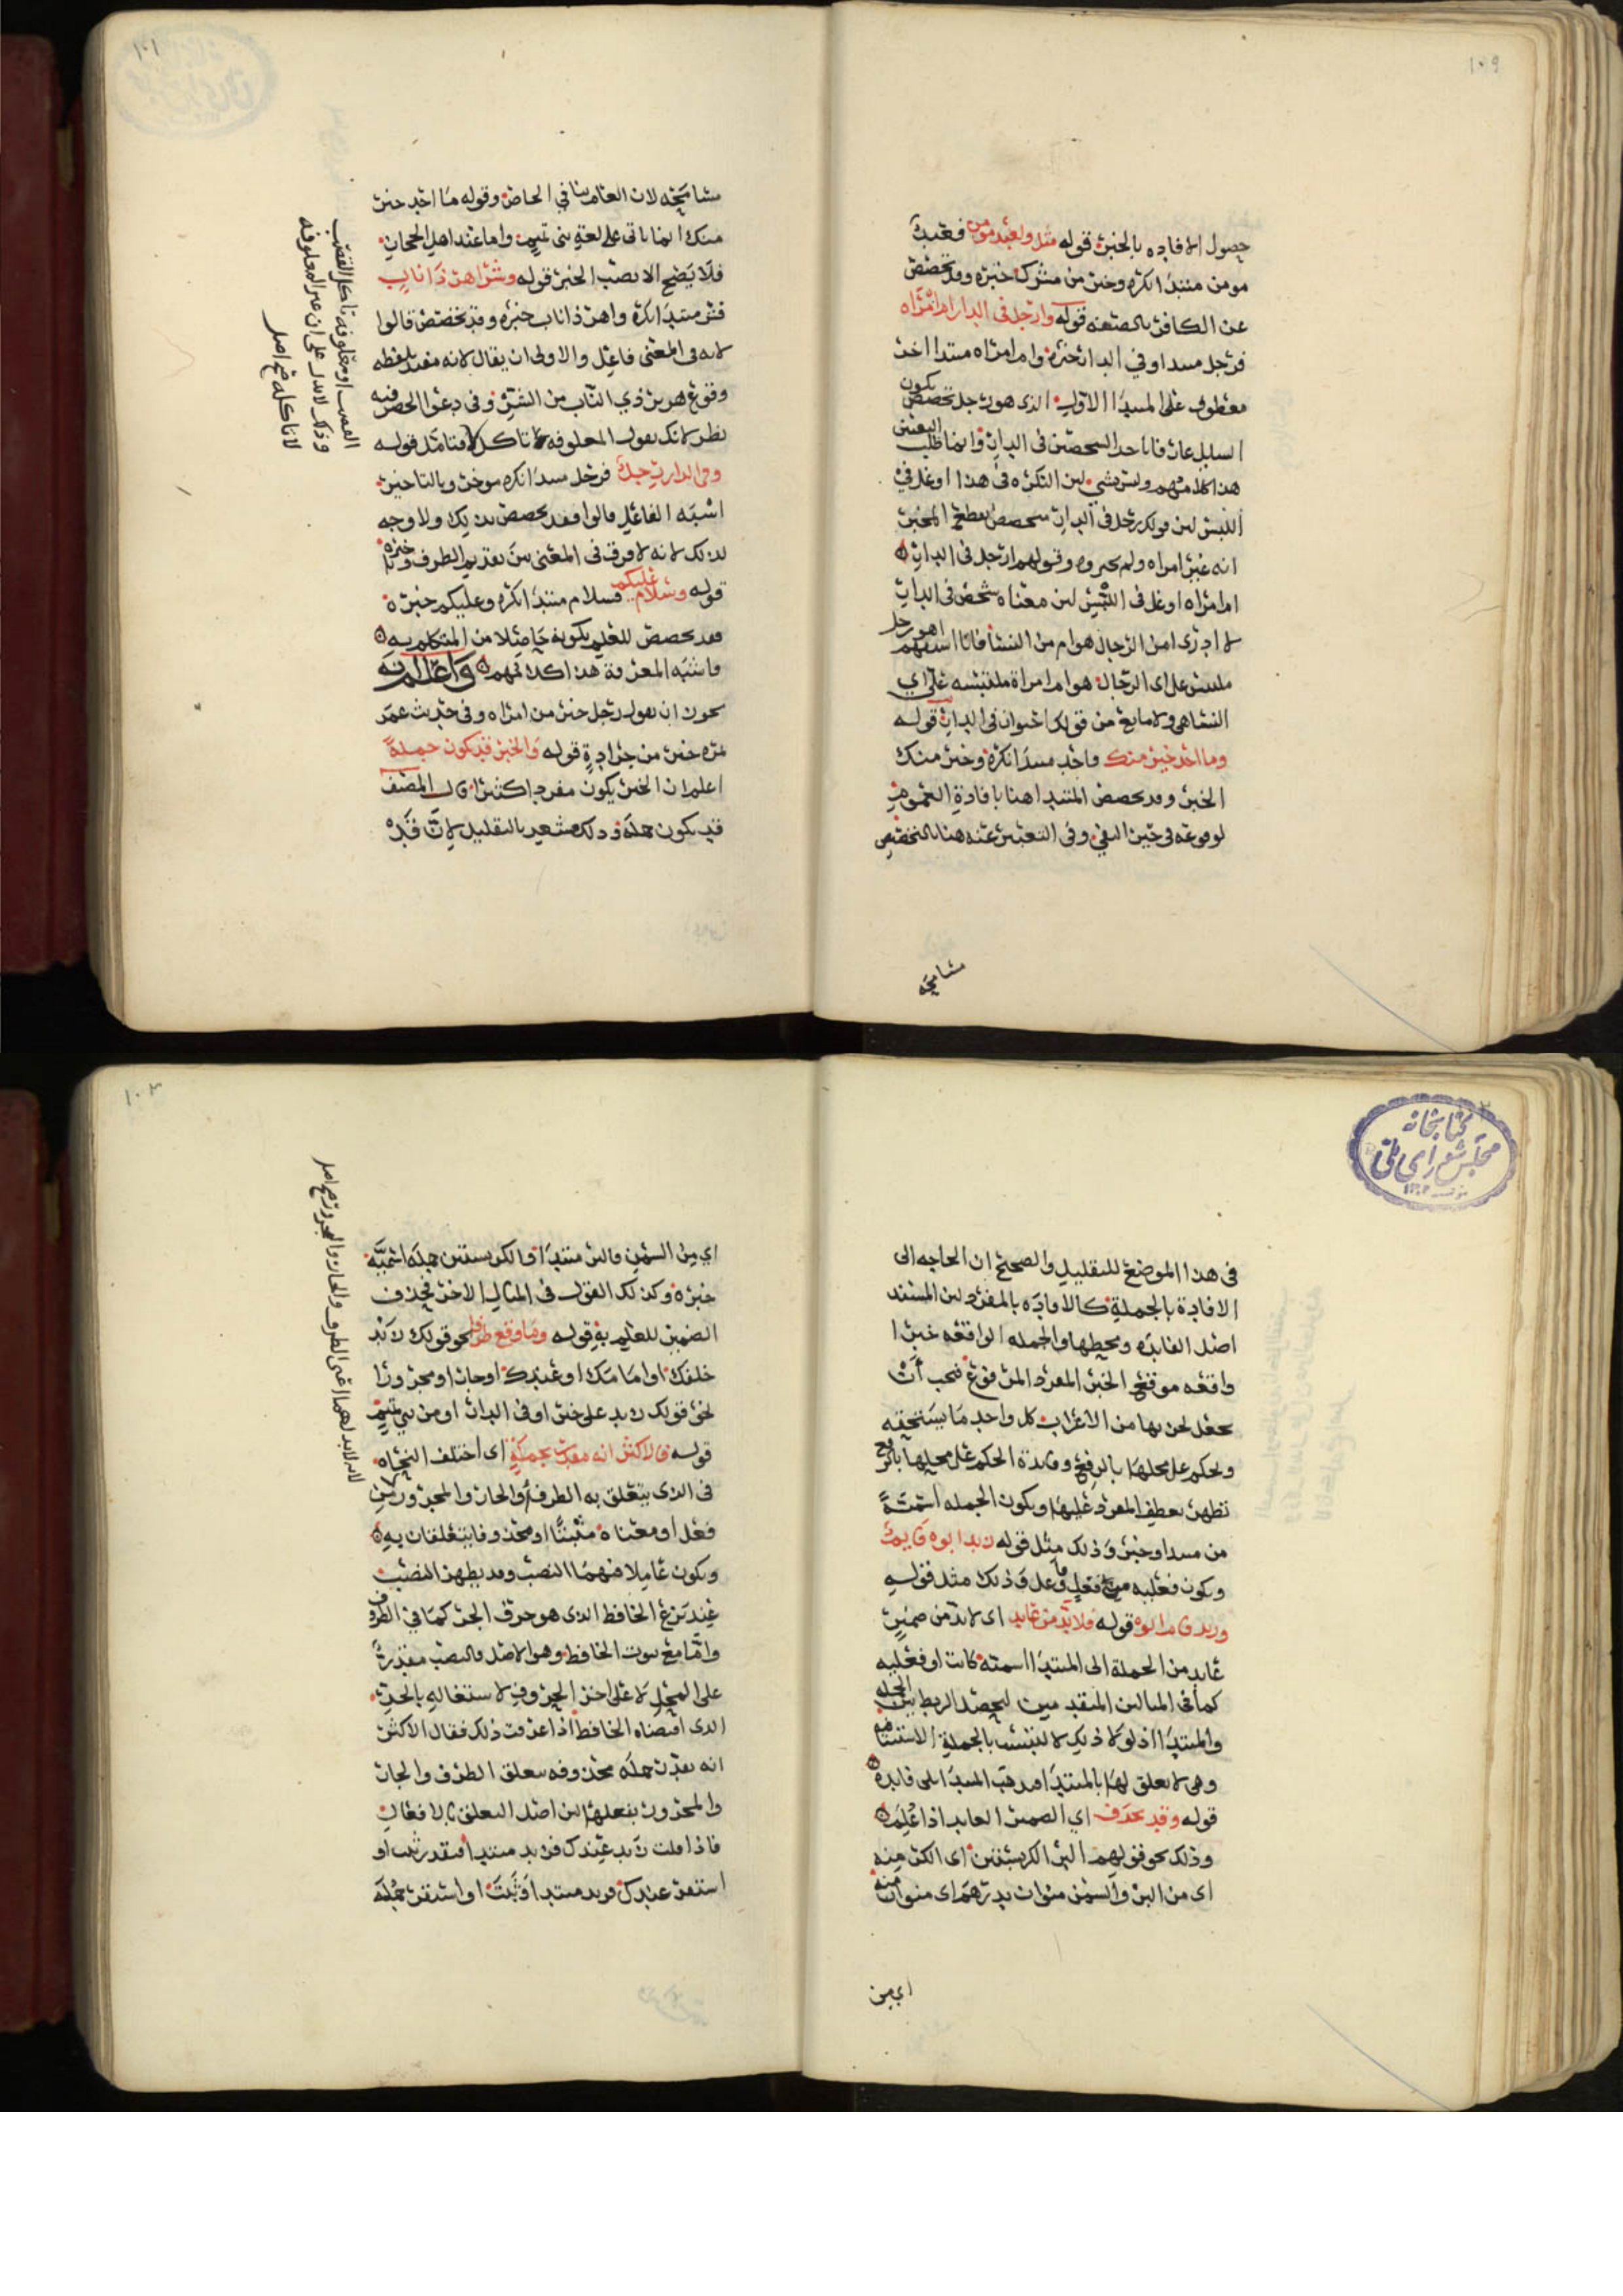 ١٠٩
حصول الافاده بالخبر قوله مثل ولعبد مومن فعبد
مومن مبتدا نكره وخير من مشرك خبره وقد تخصص
عن الكافر بالصفه قوله وارجل في الدار ام امراه
فرجل مبتدا وفي الدار خبره وام امراه مبتدا اخر
معطوف على المبتدا الاول الذي هو رجل تخصص يكون
السايل عارفا باحد الشخصين في الدار وانما طلب التعيين
هذا كلامهم وليس بشي لان النكره في هذا اوغل في
اللبس لان قولك رجل في الدار متخصص بعطيح المخبر
انه غير امراه ولم يجيزوه وقولهم ارجل في الدار
ام امراه اوغل في اللبس لان معناه شخص في الدار
لا ادري امن الرجال هو ام من النسا فانا استفهم اهو رجل
ملتبس على اي الرجال هو ام امراة ملتبسه علي اي
النسا هي ولا مانع من قولك انسوان في الدار قوله
وما احد خير منك فاحد مبتدا نكره وخير منك
الخبر وقد تخصص المبتدا هنا بافادة العموم
لوقوعه في حيز النفي وفي التعبير عنه هنا بالتخصيص
مشامحه
١٠١
مشامحه لان العام ينافي الخاص وقوله ما احد خير
منك انما ياتي على لغة بني تميم واما عند اهل الحجاز
فلا يصح الا بنصب الخبر قوله وشر اهر ذا ناب
فشر مبتدا نكرة واهر ذا ناب خبره وقد تخصص قالوا
لانه في المعنى فاعل والاولى ان يقال لانه مفيد بلفظه
وقوع هرير ذي الناب من الشر وفي دعوا الحصر فيه
نظر لانك تقول المعلوفه لا تاكل الا فتامل قوله
وفي الدار رجل فرجل مبتدا نكره موخر وبالتاخير
اشبه الفاعل قالوا فقد تخصص بذلك ولا وجه
لذلك لانه لا فرق في المعنى بين تقديم الظرف وتاخيره
قوله وسلام عليكم فسلام مبتدا نكره وعليكم خبره
فقد تخصص للعلم بكونه حاصلا من المتكلم به
فاشبه المعرفة هذا كلامهم واعلم انه
يجوز ان تقول رجل خير من امراه وفي حديث عمر
تمره خير من جرادة قوله والخبر قد يكون جملة
اعلم ان الخبر يكون مفردا كثيرا قال المصنف
قد يكون جملة وذلك مشعر بالتقليل لان قد
وذلك لا يدل على ان غير المعلوفه
لا تاكله صح اصل
في هذا الموضع للتقليل والصحيح ان الحاجه الى
الافادة بالجملة كالافاده بالمفرد لان المسند
اصل الفايده ومحطها والجمله الواقعه خبرا
واقعه موقع الخبر المفرد المرفوع فيجب ان
يجعل لجزيها من الاعراب كل واحد ما يستحقه
ويحكم على محلها بالرفع وفايدة الحكم على محلها بالرفع
تظهر بعطف المفرد عليها ويكون الجمله اسمية
من مبتدا وخبر وذلك مثل قوله زيد ابوه قايم
ويكون فعليه من فعل وفاعل وذلك مثل قوله
وزيد قام ابوه قوله فلا بد من عايد اي لا بد من ضمير
عايد من الجملة الى المبتدا اسميه كانت او فعليه
كما في المثالين المتقدمين ليحصل الربط بين الجمله
والمبتدا اذ لولا ذلك لالتبست بالجملة الاستينافيه
وهي لا تعلق لها بالمبتدا فيذهب المبتدا بلا فايدة
قوله وقد يحذف اي الضمير العايد اذا علم
وذلك نحو قولهم البر الكر بستين اي الكر منه
اي من البر والسمن منوان بدرهم اي منوان منه
اي من
١٠٣
اي من السمن فالبر مبتدا والكر بستين جملة اسمية
خبره وكذلك القول في المثال الاخر فحذف
الضمير للعلم به قوله وما وقع ظرفا نحو قولك زيد
خلفك او امامك او عندك او جارا ومجرورا
نحو قولك زيد على خير او في الدار او من بني تميم
قوله فالاكثر انه مقدر بجملة اي اختلف النحاه
في الذي يتعلق به الظرف والجار والمجرور من
فعل او معناه مثبتا او محذوفا يتعلقان به
ويكون عاملا فيهما النصب وقد يظهر النصب
عند نزع الخافظ الذي هو حرف الجر كما في الظرف
واما مع ثبوت الخافظ وهو الاصل فالنصب مقدر
على المحل لا على اخر المجرور لاشتغاله بالجر
الذي اقتضاه الخافظ اذا عرفت ذلك فقال الاكثر
انه يقدر جملة محذوفه يتعلق الظرف والجار
والمجرور بفعلها لان اصل التعلق بالافعال
فاذا قلت زيد عندك فزيد مبتدا فتقدر ثبت او
استقر عندك فزيد مبتدا وثبت او استقر جملة
لانه لا بد لهما اعني الظرف والجار والمجرور صح اصل
كتابخانه
مجلس شوراى ملى